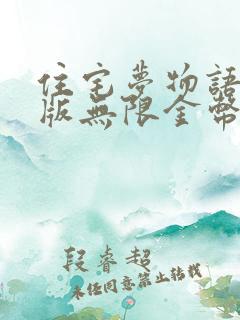 住宅夢物語
版無限金幣
段睿超
未经同意禁止转载